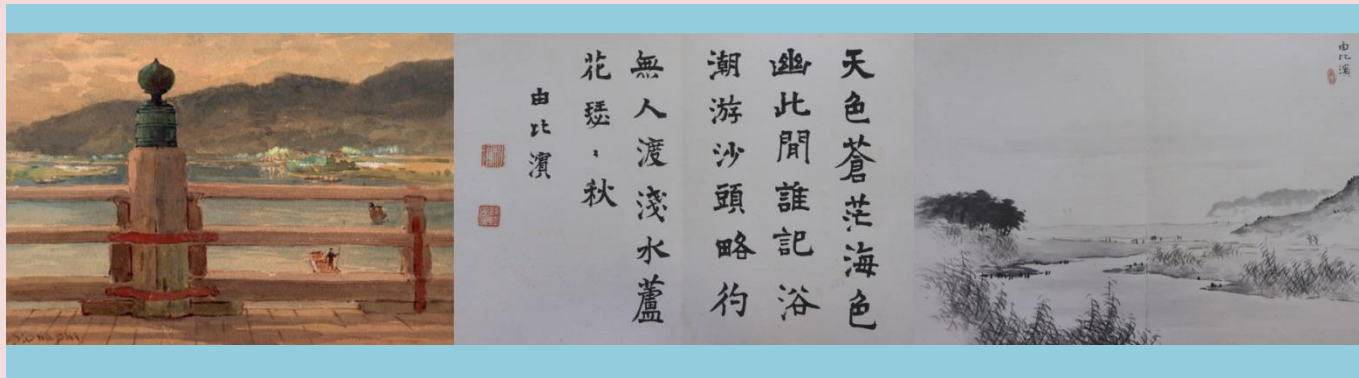 天色蒼茫海色
幽此間誰記浴
潮游沙頭略彴
無人渡淺水蘆
花瑟〻秋
由比濱
由比濱